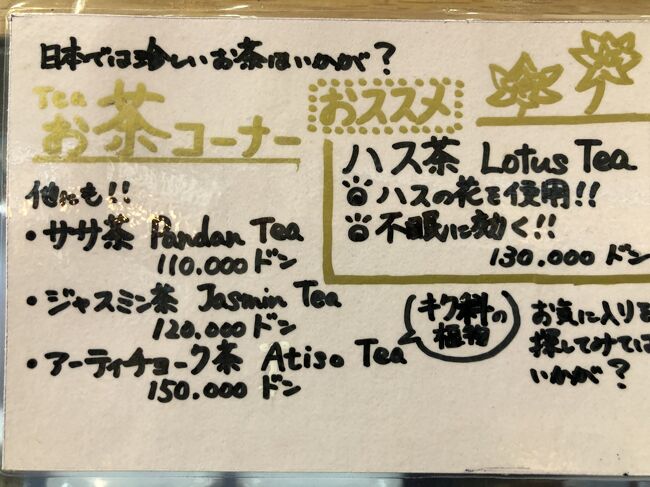 日本では珍しいお茶はいかが？
Tea
お茶コーナー
おススメ
ハス茶 Lotus Tea
ハスの花を使用!!
不眠に効く!!
130.000 ドン
他にも!!
・ササ茶 Pandan Tea
110.000 ドン
・ジャスミン茶 Jasmin Tea
120.000 ドン
・アーティチョーク茶 Atiso Tea
150.000 ドン
キク科の
植物
お気に入りを
探してみては
いかが？